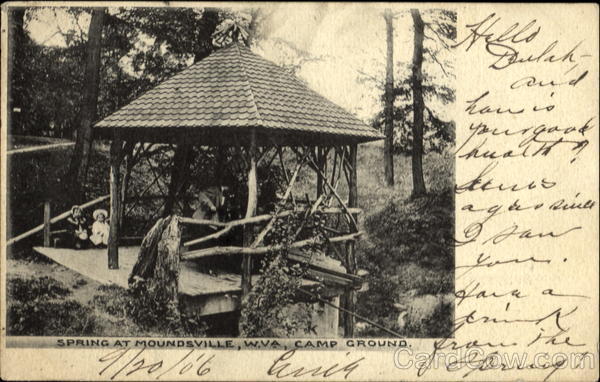 Hello
Dulah,
and
how is
your good
health?
agoo since
I saw
you.
Have a
drink
from the
Spring
SPRING AT MOUNDSVILLE, W.VA., CAMP GROUND.
9/20/06
CardCow.com